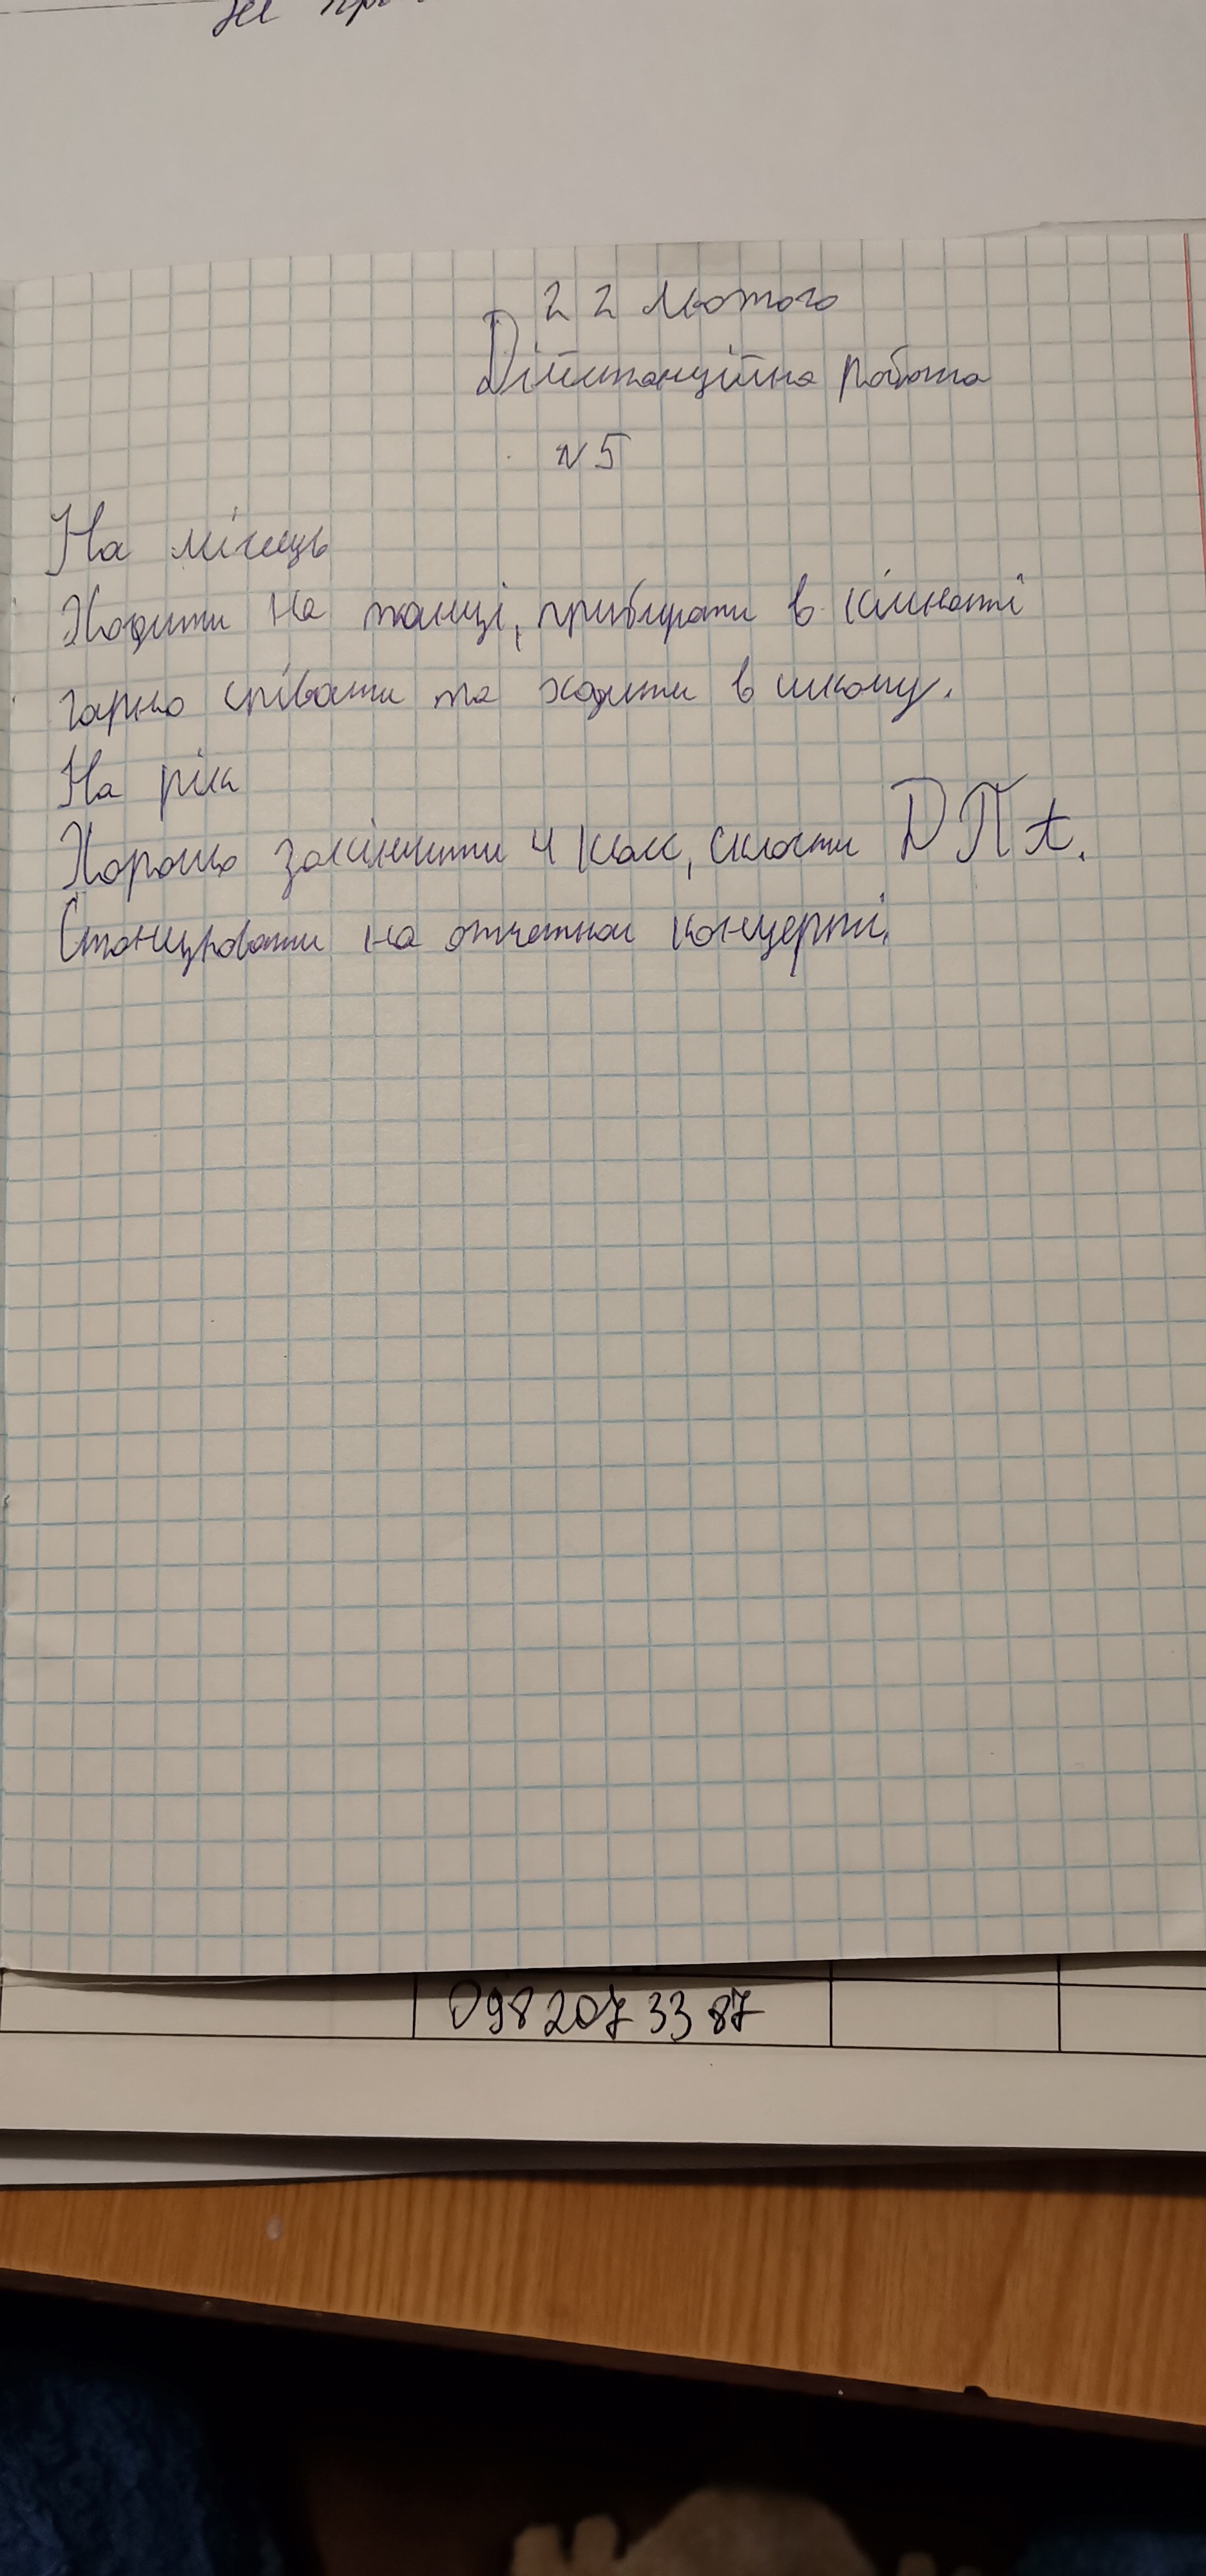 22 лютого
Дистанційна робота
N5
На місяць
Ходити на танці, прибирати в кімнаті
гарно співати та ходити в школу.
На рік
Хорошо закінчити 4 клас, скласти ДПА.
Станцювати на отчетном концерті.
098 207 33 87